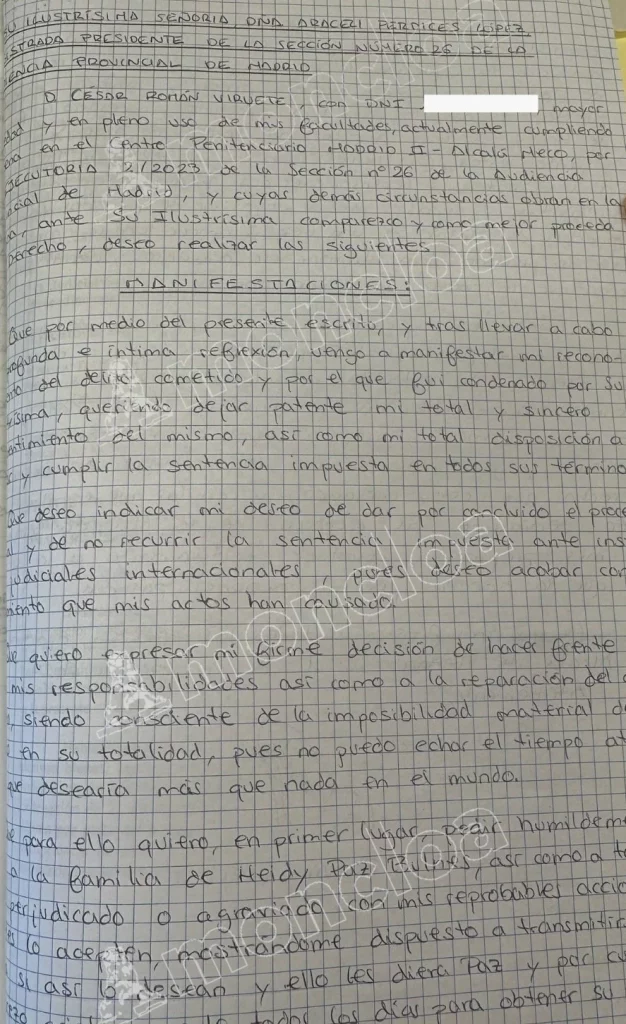 ILUSTRÍSIMA SEÑORIA DÑA ARACELI PERDICES LÓPEZ
STRADA PRESIDENTE DE LA SECCIÓN NÚMERO 26 DE LA
ENCIA PROVINCIAL DE MADRID
D CÉSAR ROMÁN VIRUETE, con DNI mayor
dad y en pleno uso de mis facultades, actualmente cumpliendo
en el Centro Penitenciario Madrid II - Alcalá Meco, por
ECUTORIA 2/2023 de la Sección nº 26 de la Audiencia
cial de Madrid, y cuyas demás circunstancias obran en la
ante Su Ilustrísima comparezco y como mejor proceda
Derecho, deseo realizar las siguientes
MANIFESTACIONES:
Que por medio del presente escrito, y tras llevar a cabo
ofunda e íntima reflexión, vengo a manifestar mi recono-
nto del delito cometido y por el que fui condenado por Su
ísima, queriendo dejar patente mi total y sincero
ntimiento del mismo, así como mi total disposición a
y cumplir la sentencia impuesta en todos sus término
Que deseo indicar mi deseo de dar por concluido el proce
y de no recurrir la sentencia impuesta ante ins
judiciales internacionales, pues deseo acabar con
iento que mis actos han causado.
quiero expresar mi firme decisión de hacer frente
mis responsabilidades así como a la reparación del
siendo consciente de la imposibilidad material d
en su totalidad, pues no puedo echar el tiempo at
ue desearía más que nada en el mundo.
para ello quiero, en primer lugar, pedir humildem
a la familia de Heidy Paz Bulnes, así como a t
perjudicado o agraviado con mis reprobables accio
lo acepten, mostrándome dispuesto a transmitir
si así lo desean y ello les diera Paz y por
todos los días para obtener su
moncloa
moncloa
moncloa
moncloa